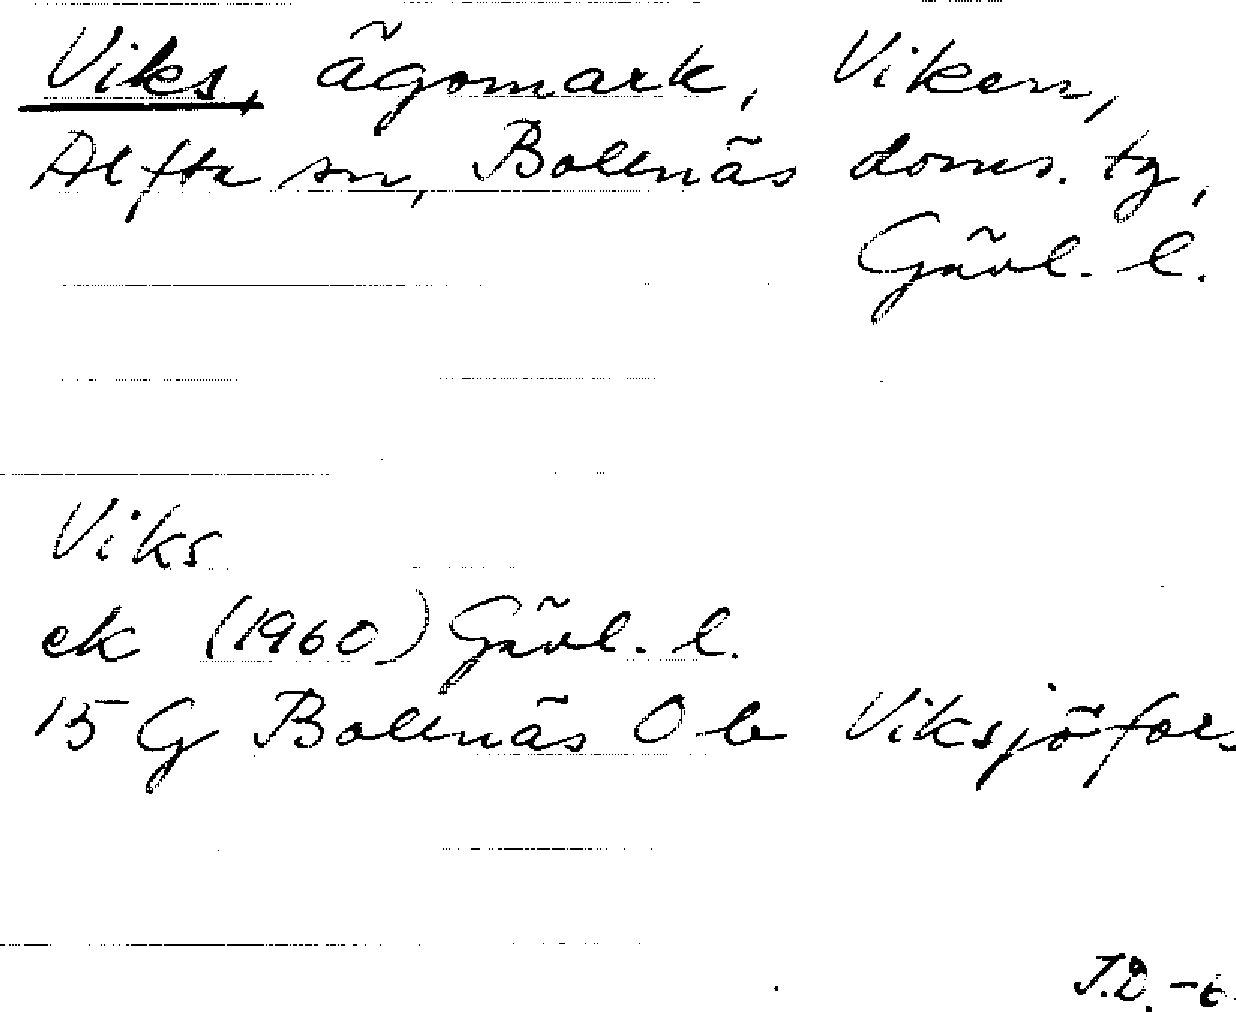 Viks, ägomark, Viken,
Alfta sn, Bollnäs doms. tg,
Gävl. l.
Viks
ek (1960) Gävl. l.
15 G Bollnäs 0 b Viksjöfors
J.D.